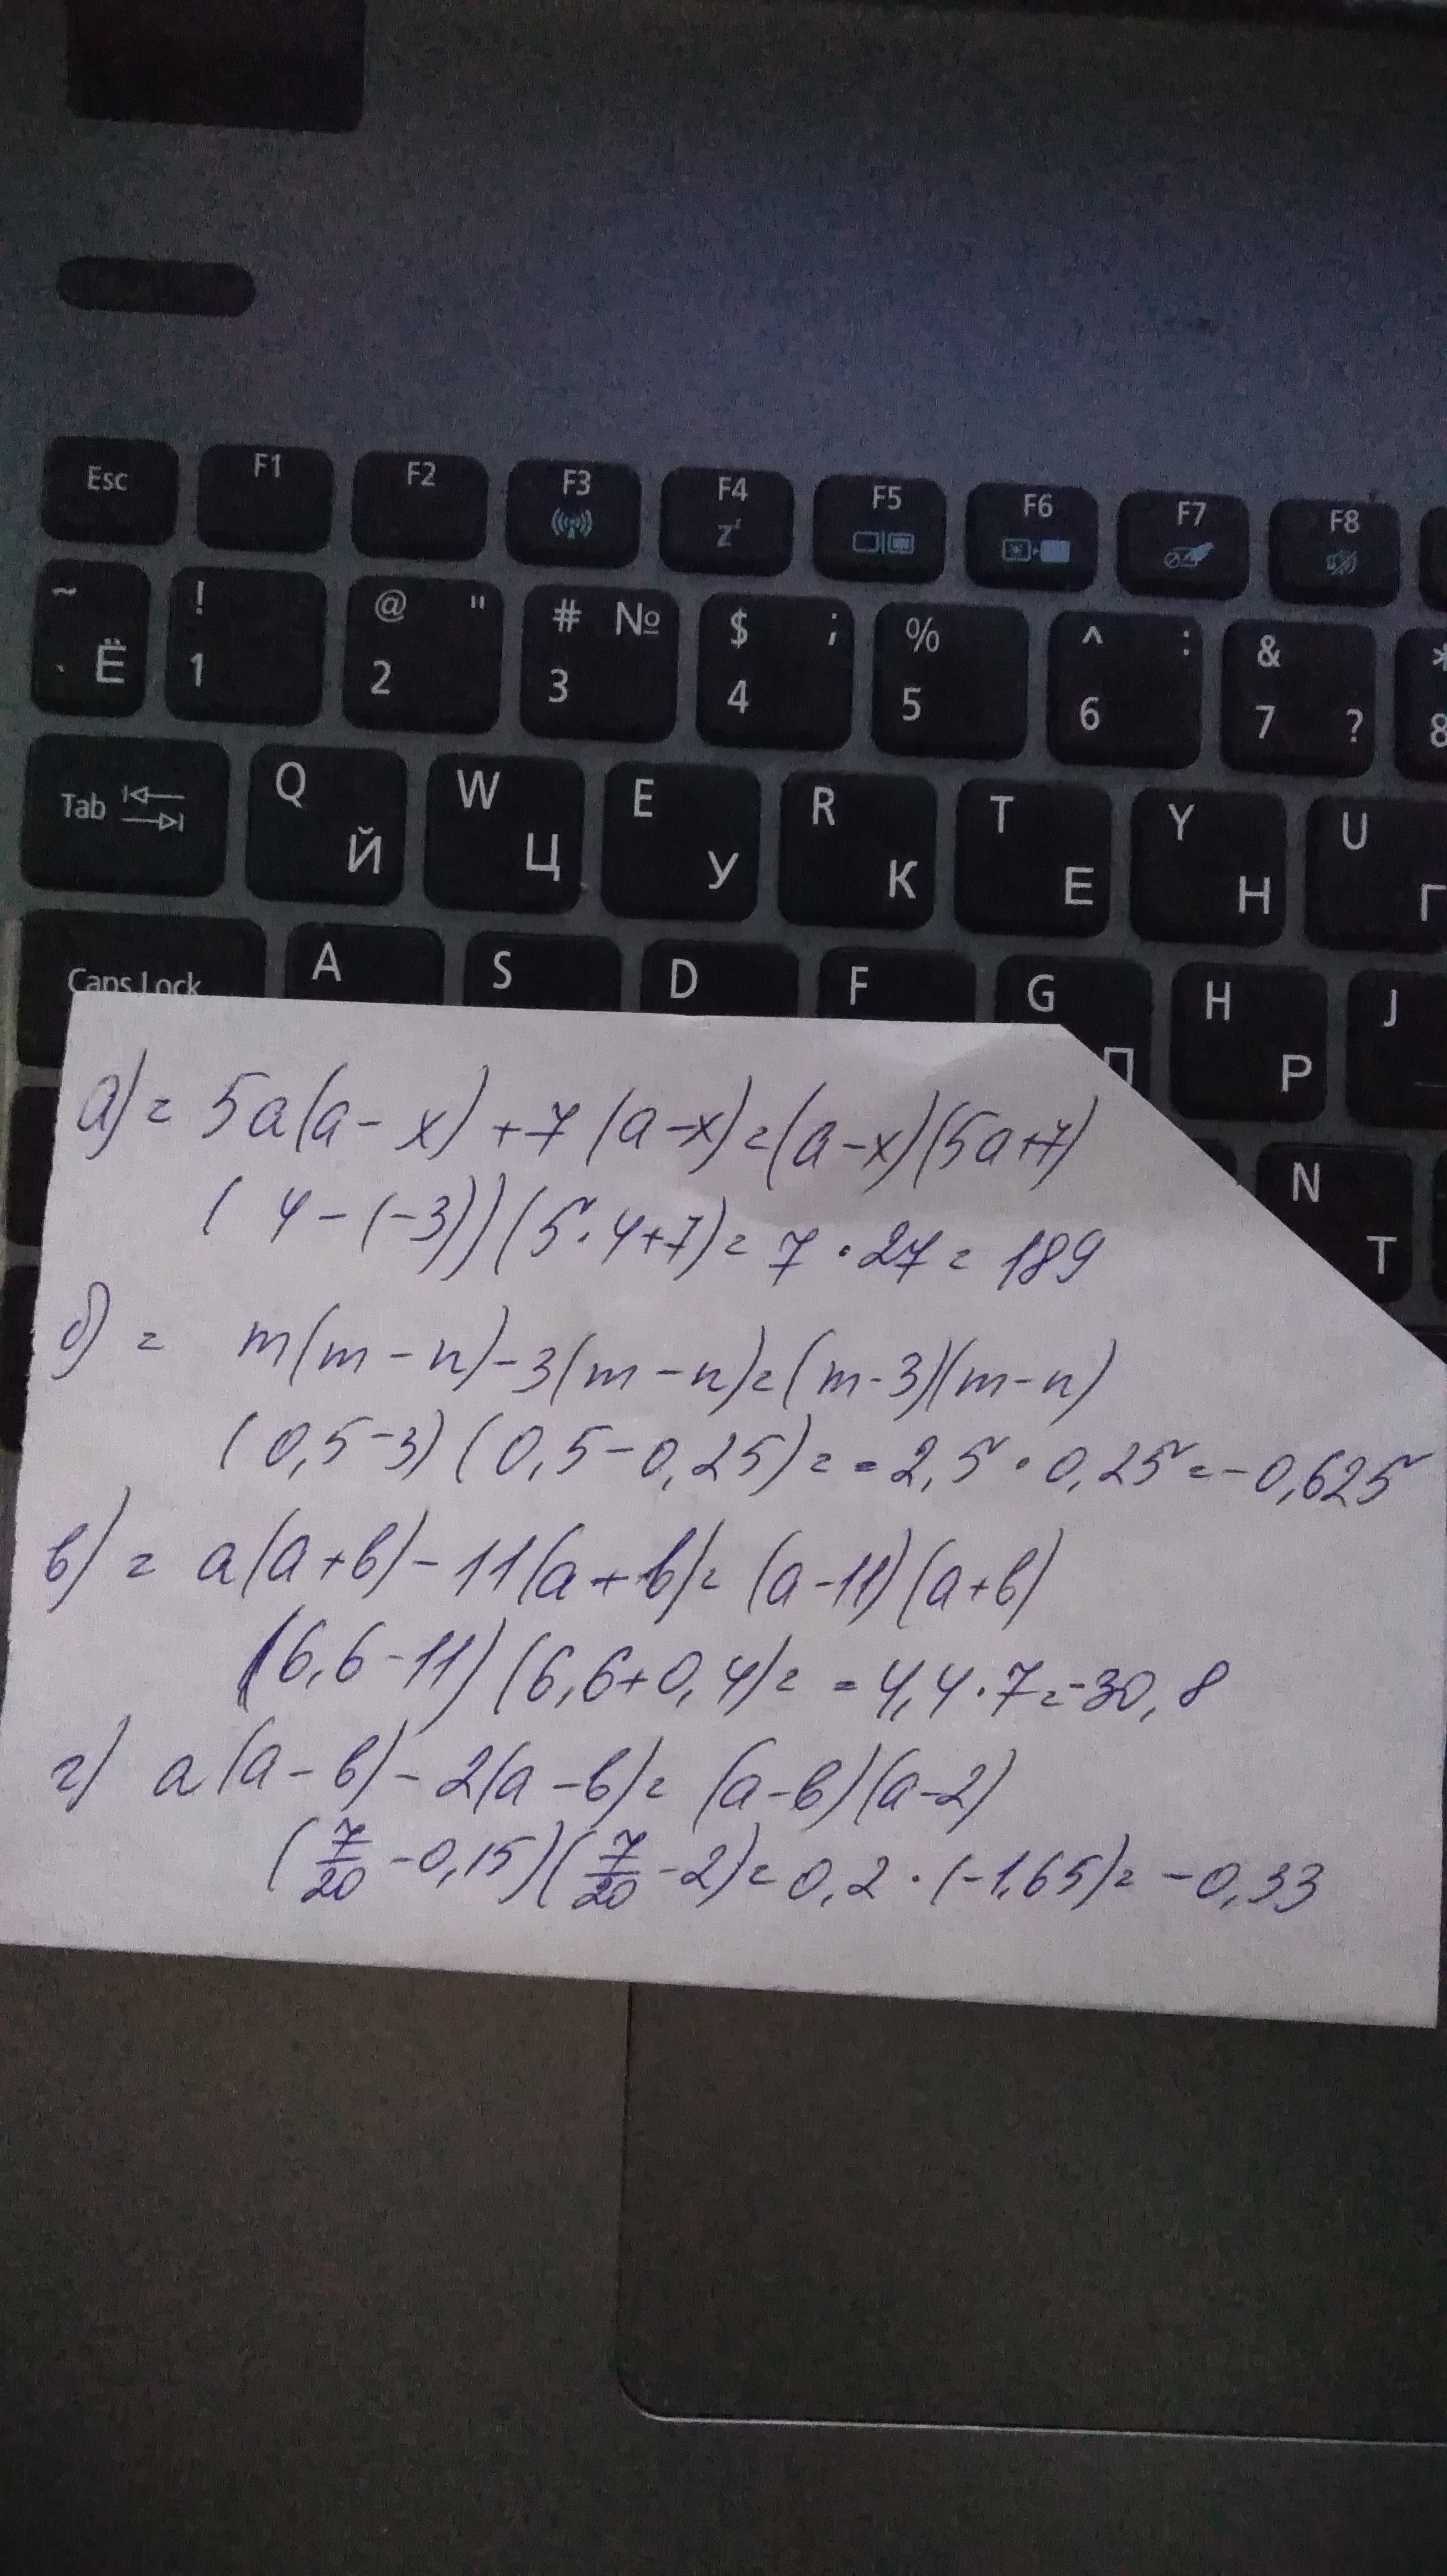 Esc F1 F2 F3 F4 Z F5 F6 F7 F8
~ ` Ё ! 1 @ " 2 # № 3 $ ; 4 % 5 ^ : 6 & 7 ? * 8
Tab Q Й W Ц E У R К T Е Y Н U Г
Caps Lock A S D F G П H Р J
N Т
а) = 5a(a - x) + 7(a - x) = (a - x)(5a + 7)
(4 - (-3))(5 · 4 + 7) = 7 · 27 = 189
б) = m(m - n) - 3(m - n) = (m - 3)(m - n)
(0,5 - 3)(0,5 - 0,25) = -2,5 · 0,25 = -0,625
в) = a(a + b) - 11(a + b) = (a - 11)(a + b)
(6,6 - 11)(6,6 + 0,4) = -4,4 · 7 = -30,8
г) a(a - b) - 2(a - b) = (a - b)(a - 2)
(7/20 - 0,15)(7/20 - 2) = 0,2 · (-1,65) = -0,33